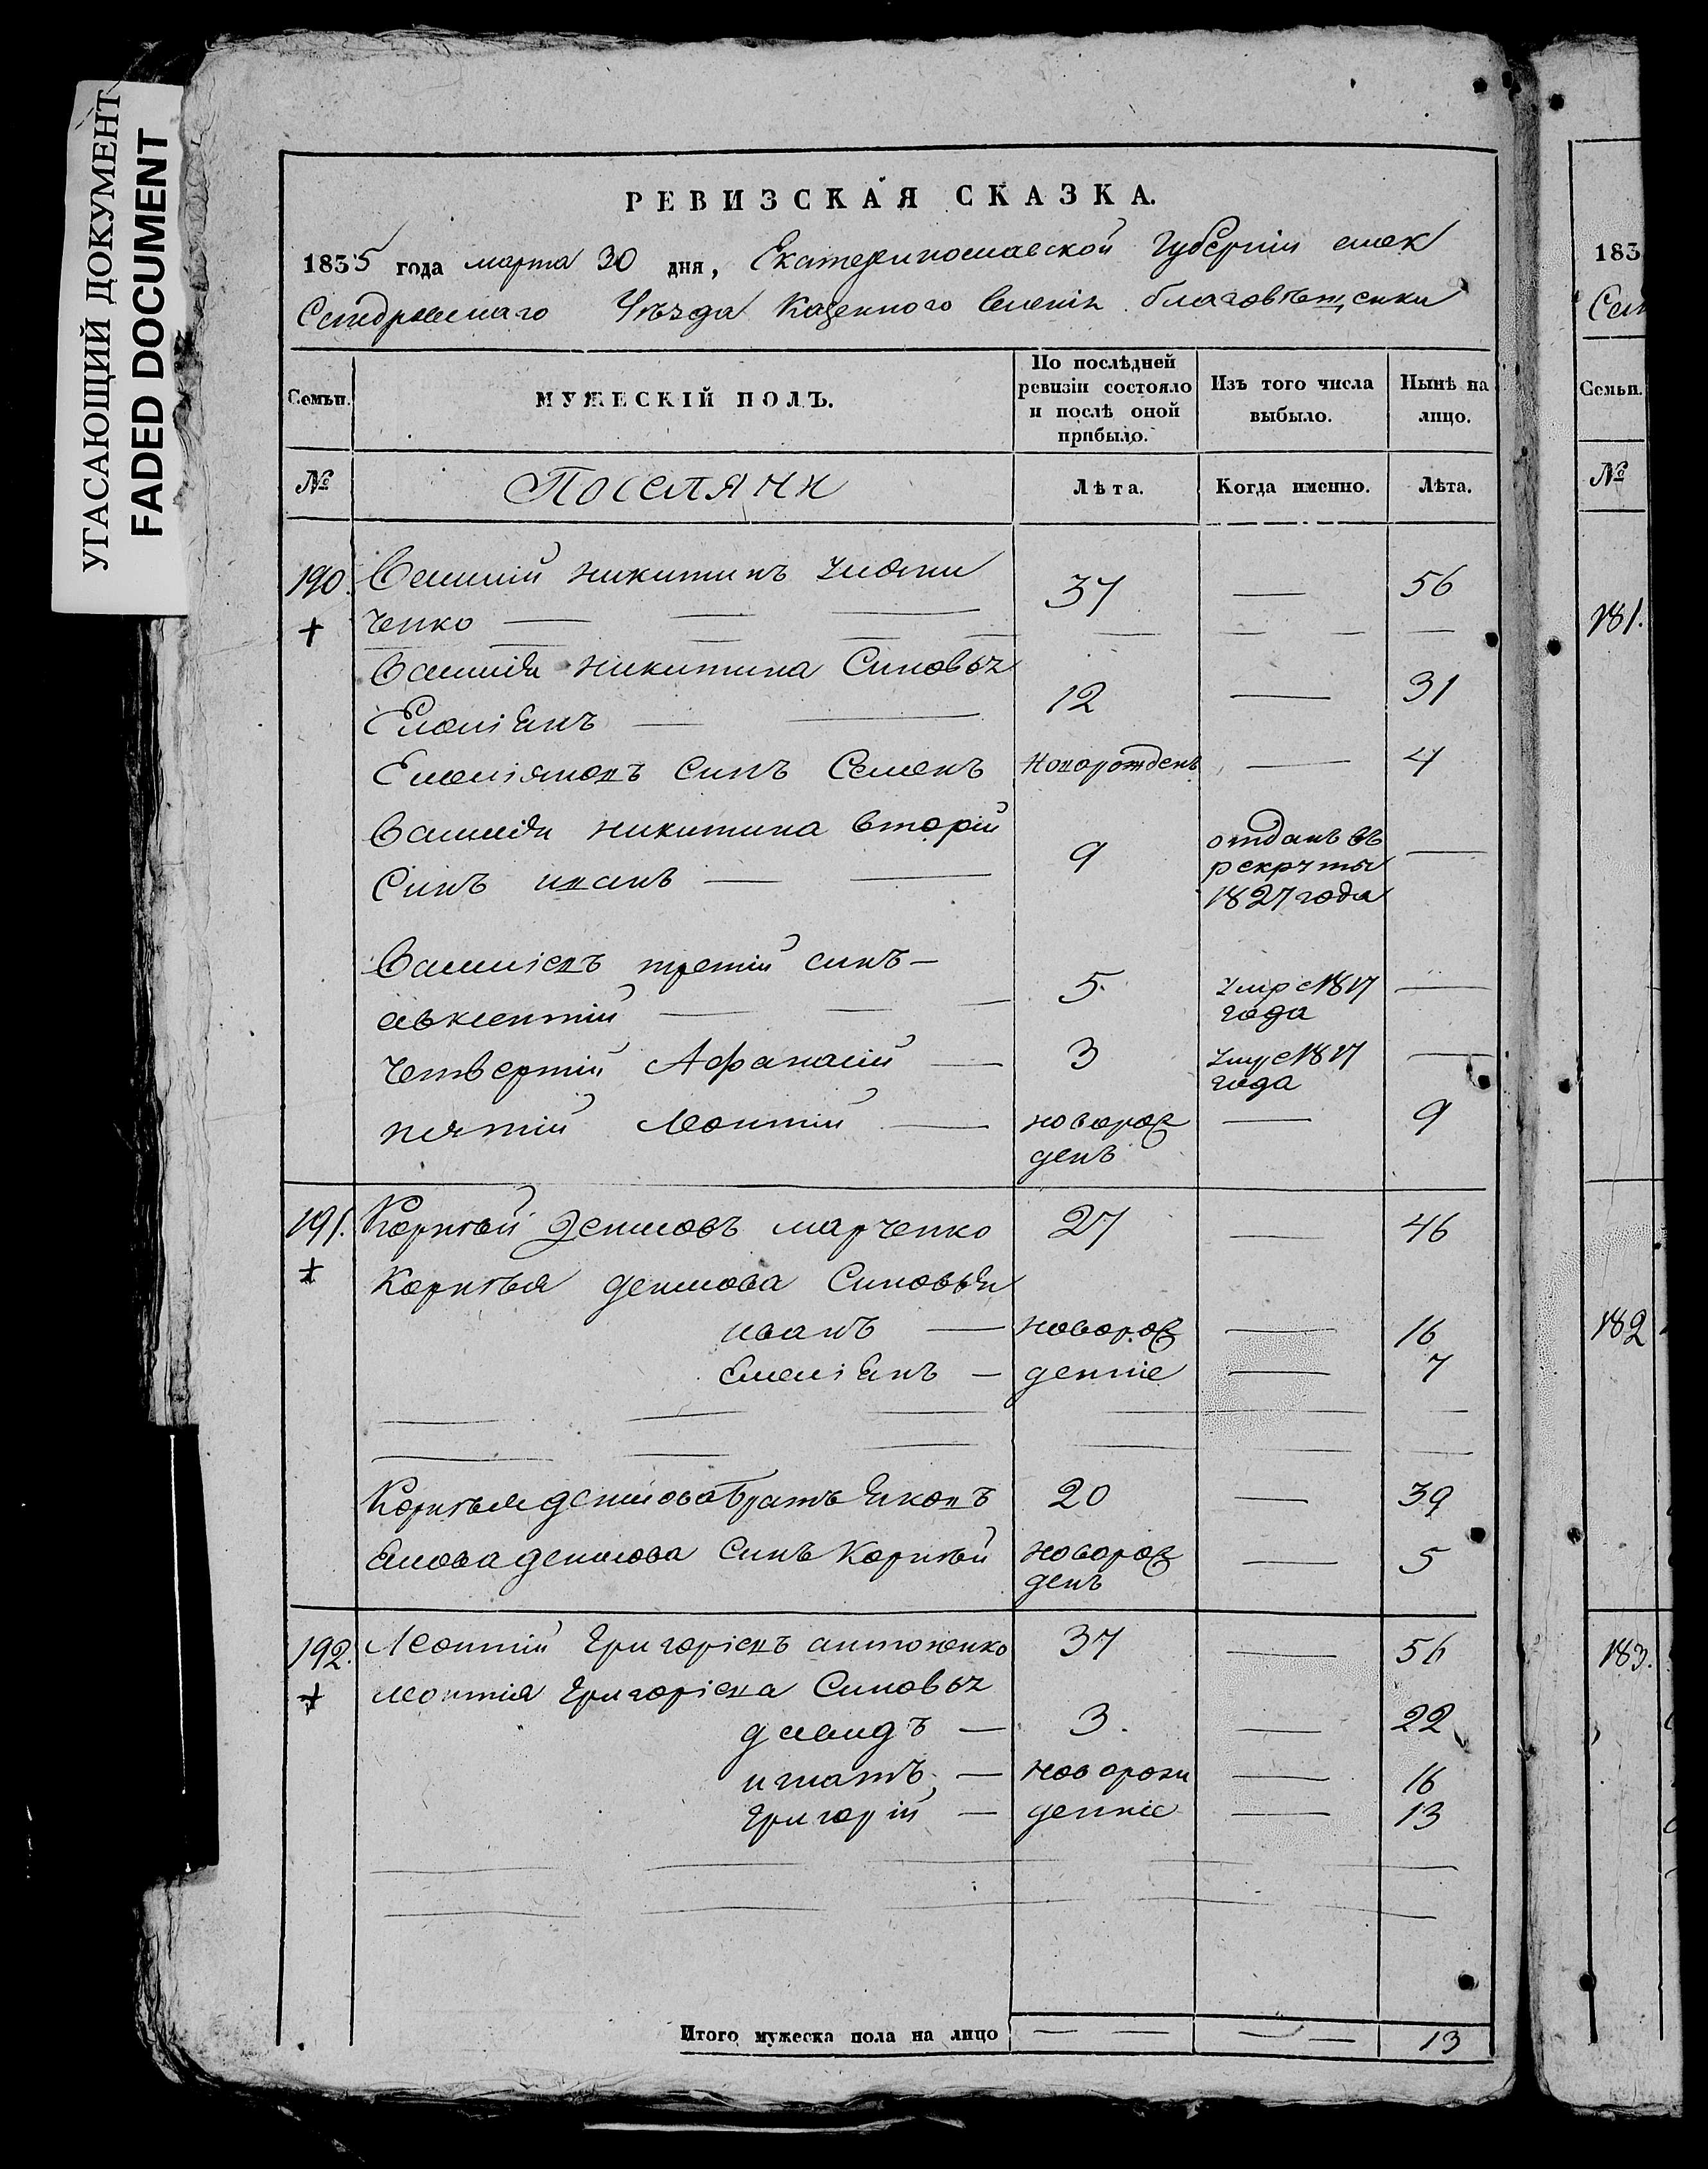 УГАСАЮЩИЙ ДОКУМЕНТ
FADED DOCUMENT
РЕВИЗСКАЯ СКАЗКА.
1835 года марта 30 дня, Екатеринославской Губернии алек
сандровскаго Уѣзда Казенного селенія благовѣщенки
Семьи.
МУЖЕСКІЙ ПОЛЪ.
По послѣдней ревизіи состояло и послѣ оной прибыло.
Изъ того числа выбыло.
Нынѣ на лицо.
№ Поселяни Лѣта. Когда именно. Лѣта.
190. Василій никитинъ 37 — 56
ченко
Василія никитина Синовья
Емелiянъ 12 — 31
Емелiяновъ синъ Семенъ новорожденъ — 4
Василія никитина вторій
Синъ иванъ 9 отданъ въ рекруты 1827 года —
Василіевъ третій синъ —
авксентій 5 умре 1817 года —
Четвертій Афанасій 3 умре 1817 года —
пятій Леонтій новорожденъ — 9
191. Корнѣй Денисовъ марченко 27 — 46
Корнѣя денисова Синовья
иванъ — новорож — 16
Емелiянъ — денніе — 7
Корнѣя денисова братъ Яковъ 20 — 39
Якова денисова Синъ Корнѣй новорожденъ — 5
192. Леонтій Григоріевъ антоненко 37 — 56
леонтія Григоріева Синовья
давидъ — 3. — 22
игнатъ — новорож — 16
Григорій — денніе — 13
Итого мужеска пола на лицо 13
183
Семьи.
№
181.
182
183.